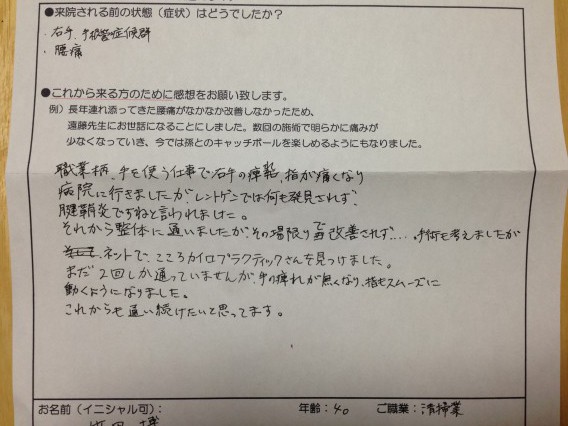 ●来院される前の状態（症状）はどうでしたか？
・右手、手根管症候群
・腰痛
●これから来る方のために感想をお願い致します。
例）長年連れ添ってきた腰痛がなかなか改善しなかったため、
遠藤先生にお世話になることにしました。数回の施術で明らかに痛みが
少なくなっていき、今では孫とのキャッチボールを楽しめるようにもなりました。
職業柄、手を使う仕事で右手の痺れ、指が痛くなり
病院に行きましたが、レントゲンでは何も発見されず、
腱鞘炎ですねと言われました。
それから整体に通いましたが、その場限りで改善されず‥‥、手術も考えましたが
ネットで、こころカイロプラクティックさんを見つけました。
まだ2回しか通っていませんが、手の痺れが無くなり、指もスムーズに
動くようになりました。
これからも通い続けたいと思ってます。
お名前（イニシャル可）：
年齢：40
ご職業：清掃業